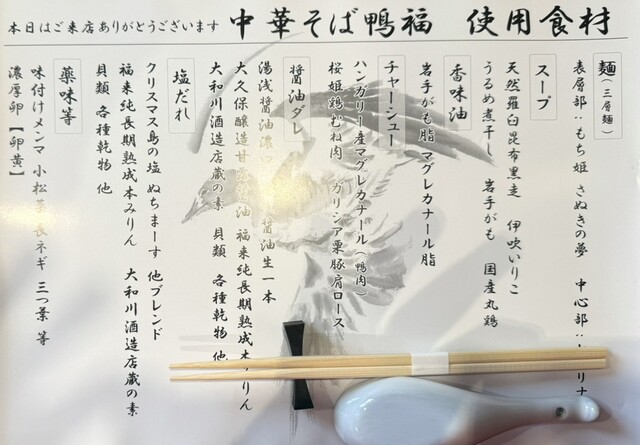 本日はご来店ありがとうございます
中華そば鴨福 使用食材
麺(三層麺)
表層部:もち姫 さぬきの夢 中心部:
スープ
天然羅臼昆布黒走 伊吹いりこ
うるめ煮干し 岩手がも 国産丸鶏
香味油
岩手がも脂 マグレカナール脂
チャーシュー
ハンガリー産マグレカナール(鴨肉)
桜姫鶏むね肉 ガリシア栗豚肩ロース
醤油ダレ
湯浅醤油濃口 醤油生一本
大久保醸造甘 油 福来純長期熟成本みりん
大和川酒造店蔵の素 貝類 各種乾物 他
塩だれ
クリスマス島の塩 ぬちまーす 他ブレンド
福来純長期熟成本みりん 大和川酒造店蔵の素
貝類 各種乾物 他
薬味等
味付けメンマ 小松菜 長ネギ 三つ葉 等
濃厚卵【卵黄】